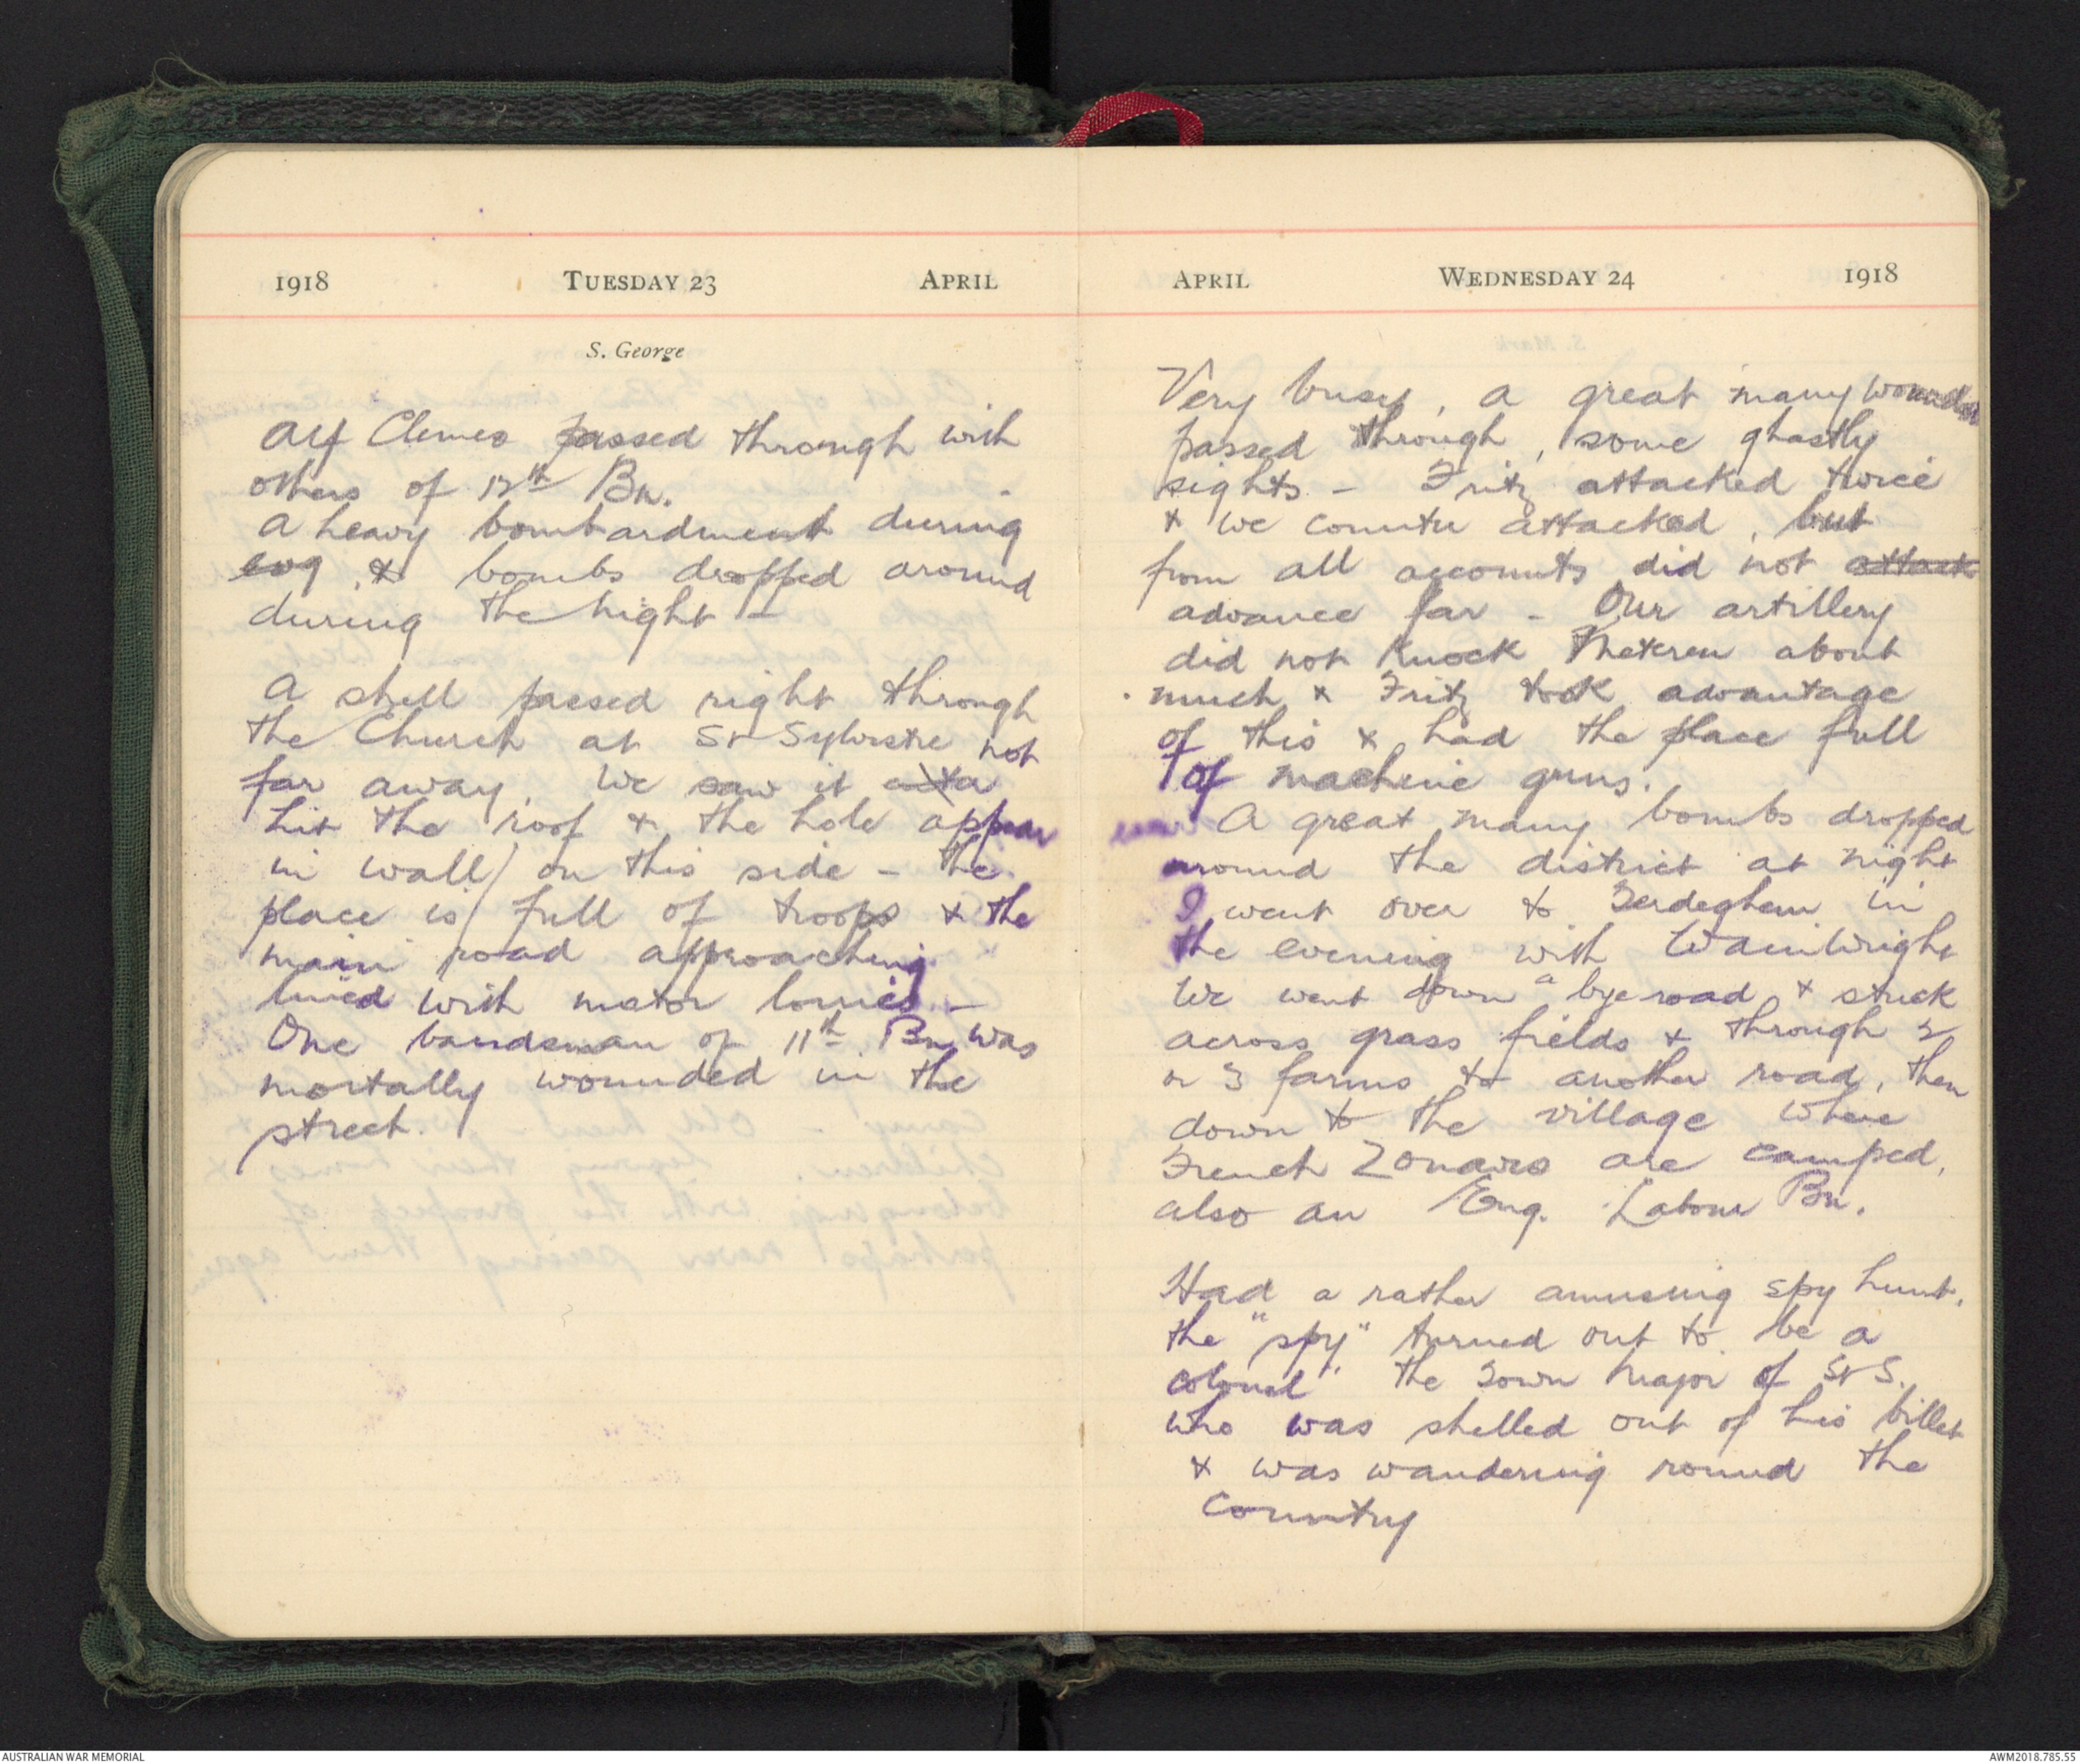 1918 TUESDAY 23 APRIL
S. George
Alf Clemes passed through with
others of 12th Bn.
A heavy bombardment during
evg, & bombs dropped around
during the night -
A shell passed right through
the Church at St Sylvestre not
far away, We saw it
hit the roof & the hole appear
in wall on this side - the
place is full of troops & the
main road approaching
lined with motor lorries -
One bandsman of 11th Bn was
mortally wounded in the
street.
APRIL WEDNESDAY 24 1918
Very busy, a great many wounded
passed through, some ghastly
sights - Fritz attacked twice
& we counter attacked, but
from all accounts did not attack
advance far - Our artillery
did not knock Meteren about
much & Fritz took advantage
of this & had the place full
of machine guns.
A great many bombs dropped
around the district at night
I went over to Terdeghem in
the evening with Wainwright
We went down a bye road & struck
across grass fields & through 2
or 3 farms to another road, then
down to the village where
French Zouaves are camped,
also an Eng. Labour Bn.
Had a rather amusing spy hunt,
the "spy" turned out to be a
colonel" the Town Major of St S.
who was shelled out of his billet
& was wandering round the
country
AUSTRALIAN WAR MEMORIAL
AWM2018.785.55